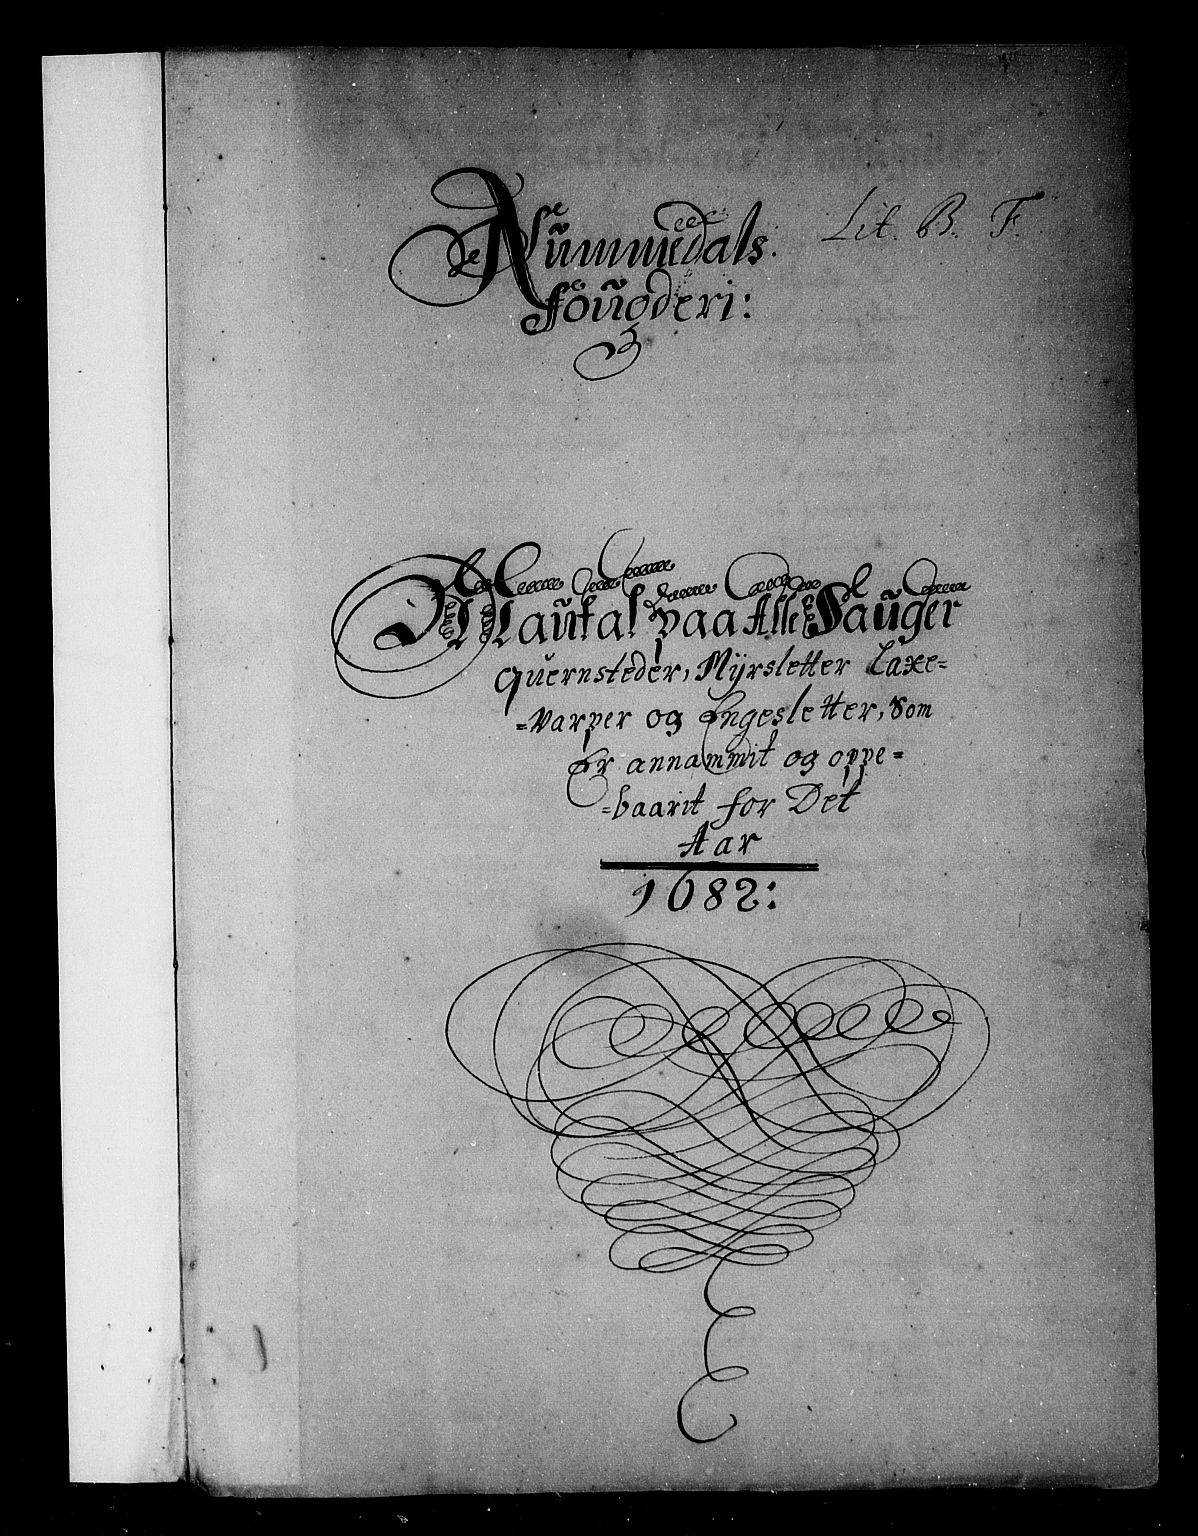 Lit. B. F.
Nummedals.
fougderi:
Mantal paa Alle Sauger
Quernsteder, Myrsletter Laxe=
=varper og Engesletter, Som
Er annammit og oppe=
=baarit for Det
Aar
1682: